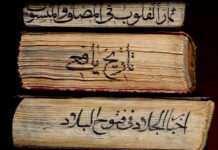 ثمار القلوب فى المضاف والمنسوب
تاريخ يافعى
اخبار الجلاد فى فتوح البلاد